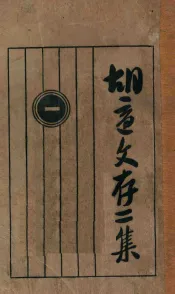 胡適文存二集
一